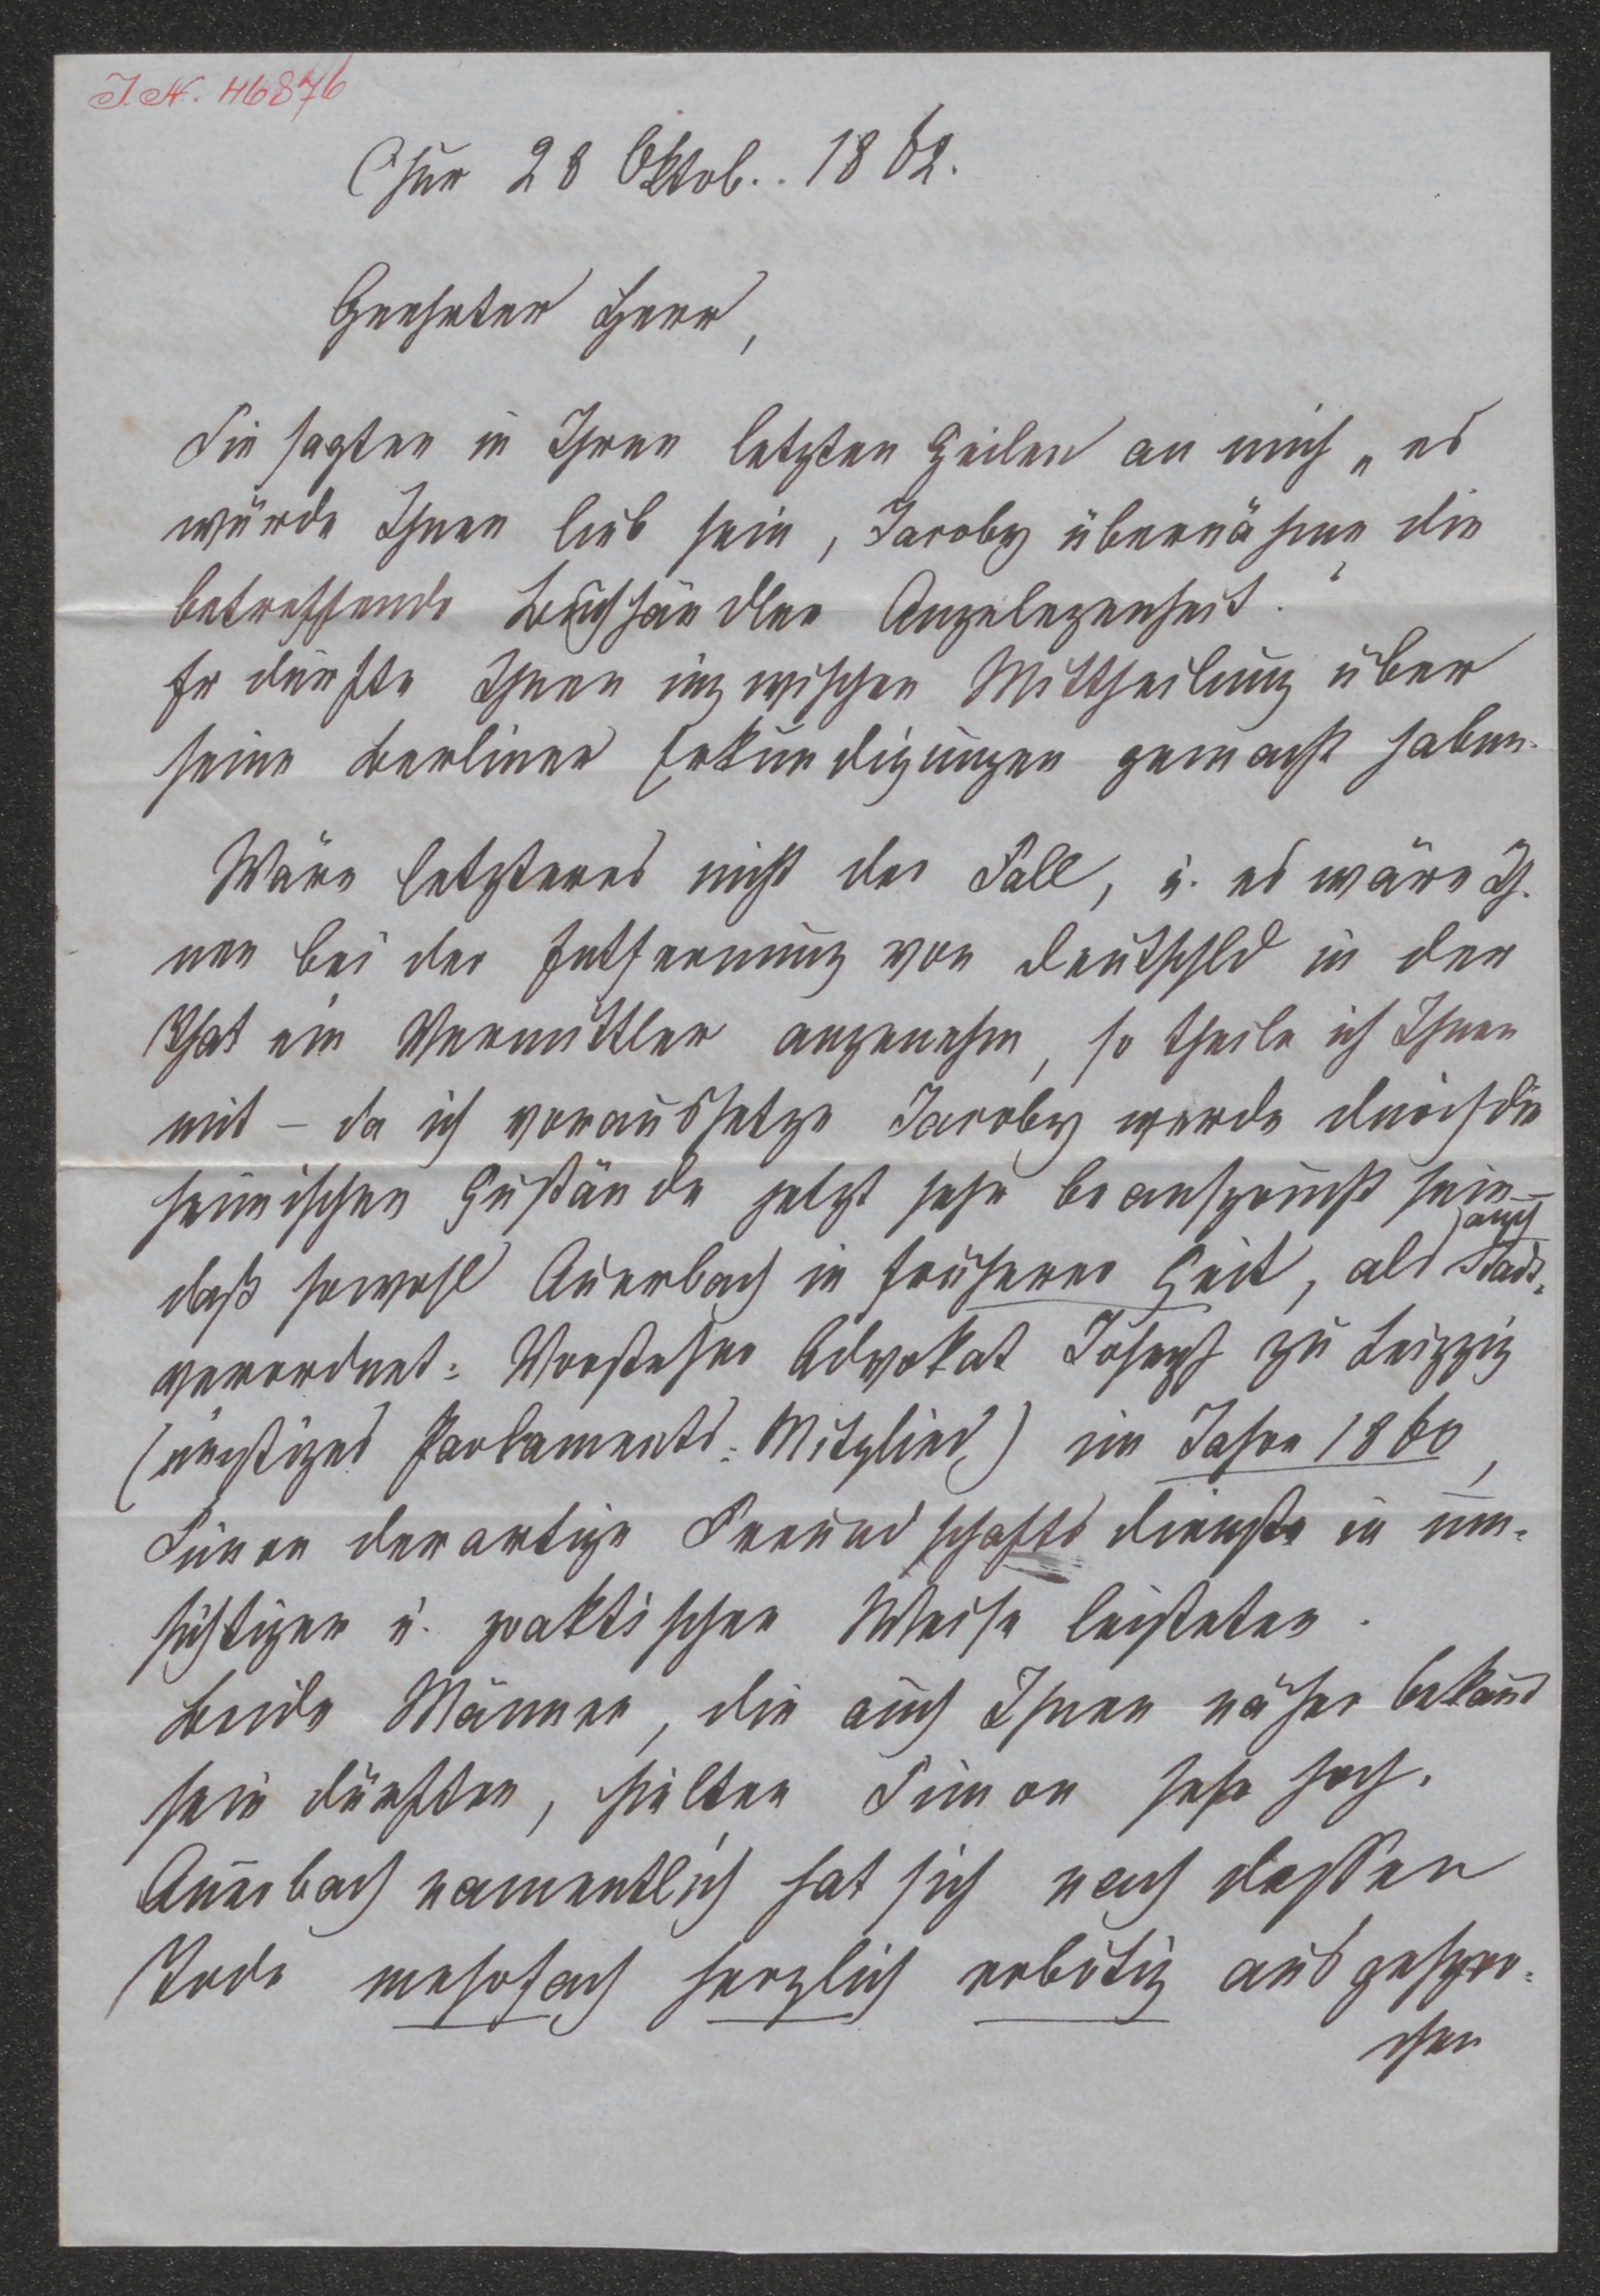 I. N. 46876
Chur 28 Oktob.. 1862.
Geehrter Herr,
Sie sagten in Ihren letzten Zeilen an mich „es
würde Ihnen lieb sein, Jacoby übernähme die
betreffende Buchhändler Angelegenheit.“
Er dürfte Ihnen inzwischen Mittheilung über
seine Berliner Erkundigungen gemacht haben.
Wäre letzteres nicht der Fall, u. es wäre Ih-
nen bei der Entfernung von Deutschld in der
That ein Vermittler angenehm, so theile ich Ihnen
mit – da ich voraussetze Jacoby werde durch die
heimischen Zustände jetzt sehr beansprucht sein –
daß sowohl Auerbach in früherer Zeit, als auch Stadt-
verordnet: Vorsteher Advokat Joseph zu Leipzig
(einstiges Parlaments-Mitglied) im Jahre 1860,
Simon derartige Freundschaftsdienste in um-
sichtiger u. praktischer Weise leisteten.
Beide Männer, die auch Ihnen näher bekannt
sein dürften, hielten Simon sehr hoch.
Auerbach namentlich hat sich nach dessen
Tode mehrfach herzlich erbötig ausgespro-
chen